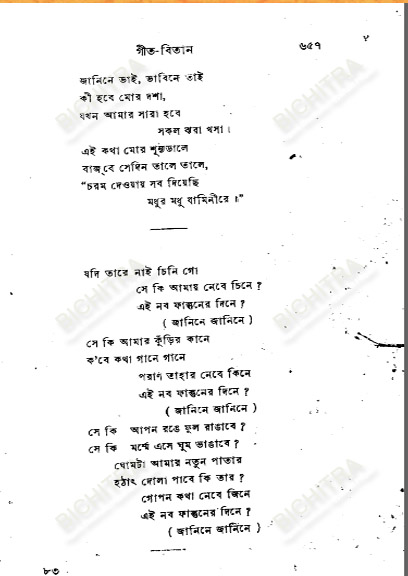 গীত-বিতান ৬৫৭
জানিনে ভাই, ভাবিনে তাই
কী হবে মোর দশা,
যখন আমার সারা হবে
সকল ঝরা খসা।
এই কথা মোর শূন্যডালে
বাজ্‌বে সেদিন তালে তালে,
“চরম দেওয়ায় সব দিয়েছি
মধুর মধু যামিনীরে॥”
যদি তারে নাই চিনি গো
সে কি আমায় নেবে চিনে?
এই নব ফাল্গুনের দিনে?
( জানিনে জানিনে )
সে কি আমার কুঁড়ির কানে
ক'বে কথা গানে গানে
পরাণ তাহার নেবে কিনে
এই নব ফাল্গুনের দিনে?
( জানিনে জানিনে )
সে কি আপন রঙে ফুল রাঙাবে?
সে কি মর্ম্মে এসে ঘুম ভাঙাবে?
ঘোমটা আমার নতুন পাতার
হঠাৎ দোলা পাবে কি তার?
গোপন কথা নেবে জিনে
এই নব ফাল্গুনের দিনে?
( জানিনে জানিনে )
৮৩
BICHITRA
BICHITRA
BICHITRA
BICHITRA
BICHITRA
BICHITRA